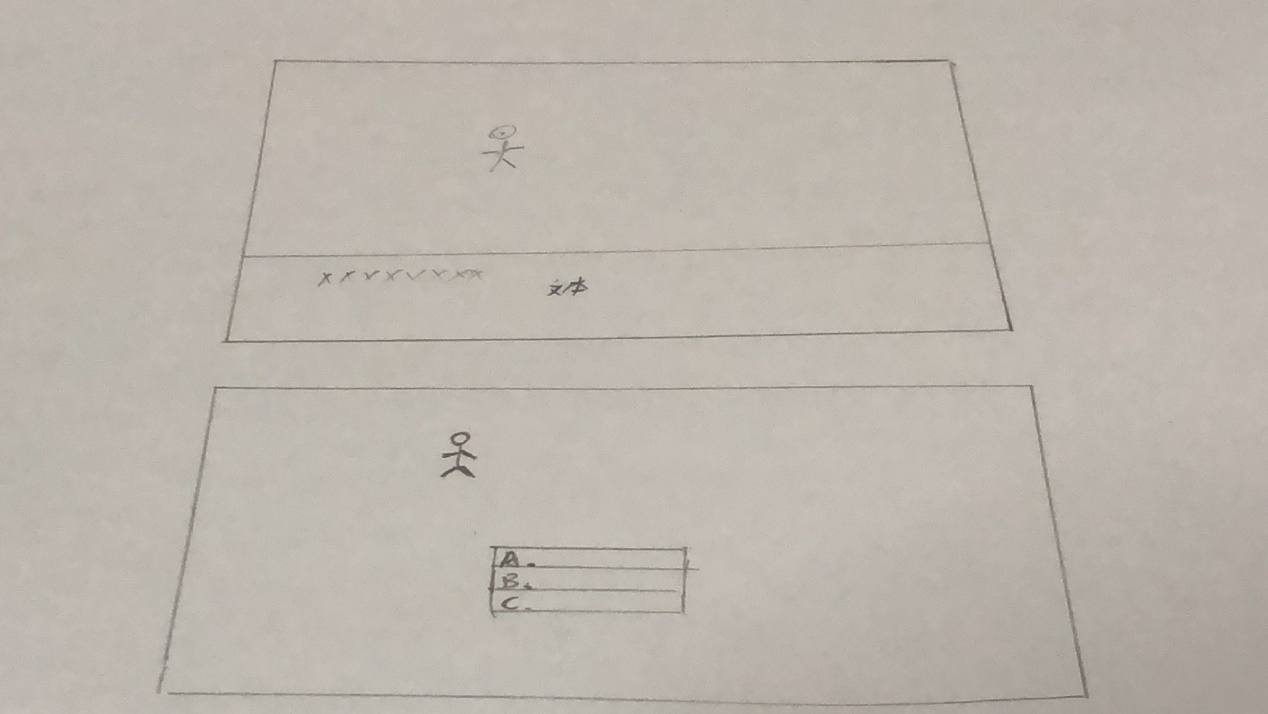 xxvxvxxx 文本
A.
B.
C.